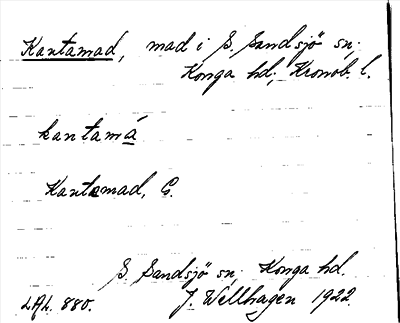 Kantamad, mad i S. Sandsjö sn;
Konga hd; Kronob. l.
kantamá
Kantamad, G.
S. Sandsjö sn; Konga hd.
J. Wellhagen 1922.
880.